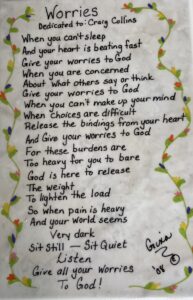 Worries
Dedicated to: Craig Collins
When you can't sleep
And your heart is beating fast
Give your worries to God
When you are concerned
About what others say or think
Give your worries to God
When you can't make up your mind
When choices are difficult
Release the bindings from your heart
And Give your worries to God
For these burdens are
Too heavy for you to bare
God is here to release
The weight
To lighten the load
So when pain is heavy
And your world seems
Very dark
Sit Still — Sit Quiet
Listen
Give all your Worries
To God!
Gina
'08 ©